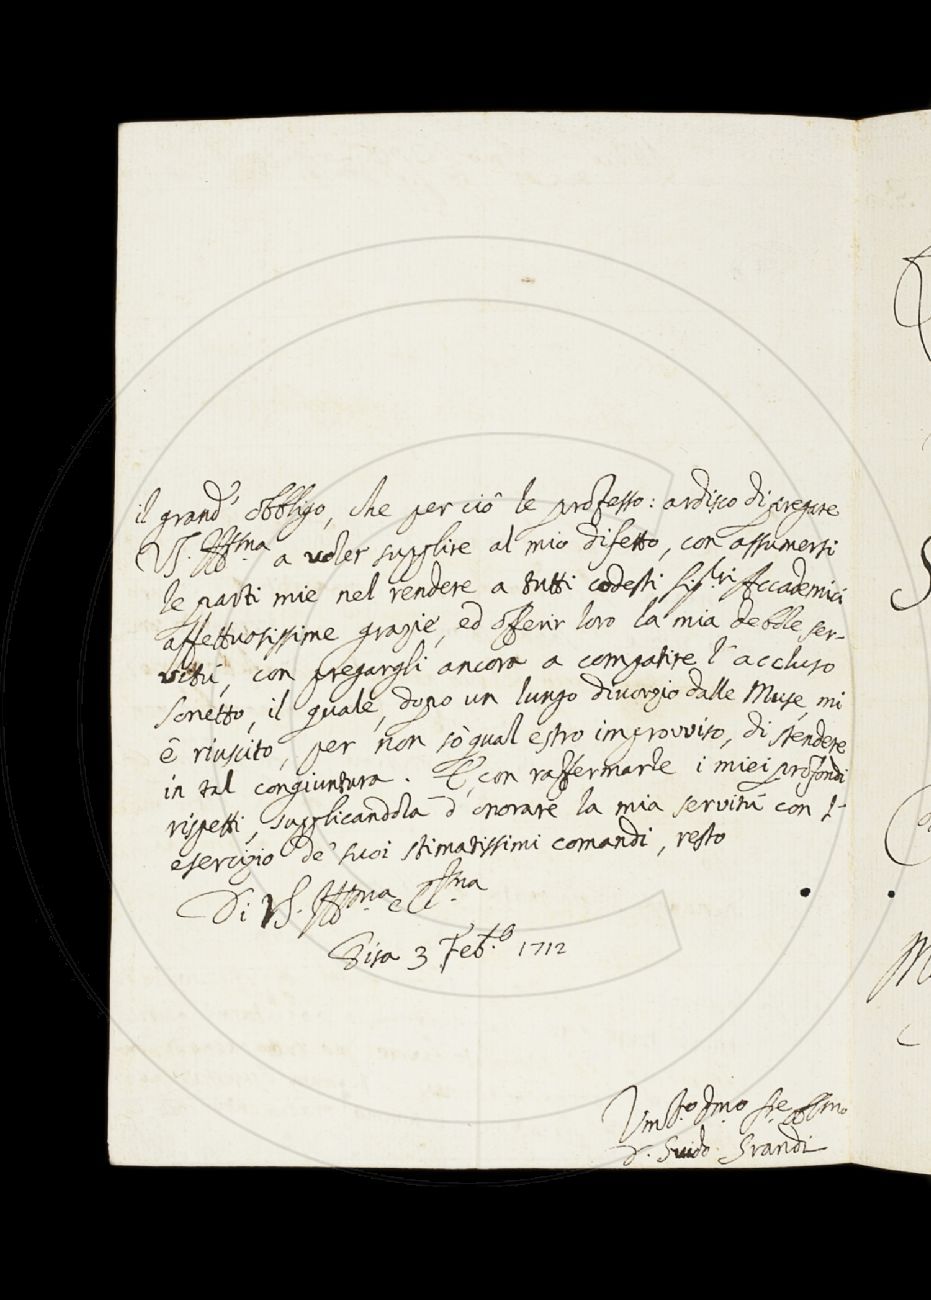 il grand' obbligo, che per ciò le professo: ardisco di pregare
VS. Illma a voler supplire al mio difetto, con assumersi
le parti mie nel rendere a tutti codesti Sig.ri Accademici
affettuosissime grazie, ed offerir loro la mia debole ser-
vitù, con pregargli ancora a compatire l'accluso
sonetto, il quale, dopo un lungo divorzio dalle Muse, mi
è riuscito, per non sò qual estro improvviso, di stendere
in tal congiuntura. E, con raffermarle i miei profondi
rispetti, supplicandola d'onorare la mia servitù con l'
esercizio de' suoi stimatissimi comandi, resto
Di VS. Illma e
Pisa 3 Feb.o 1712
D. Guido Grandi